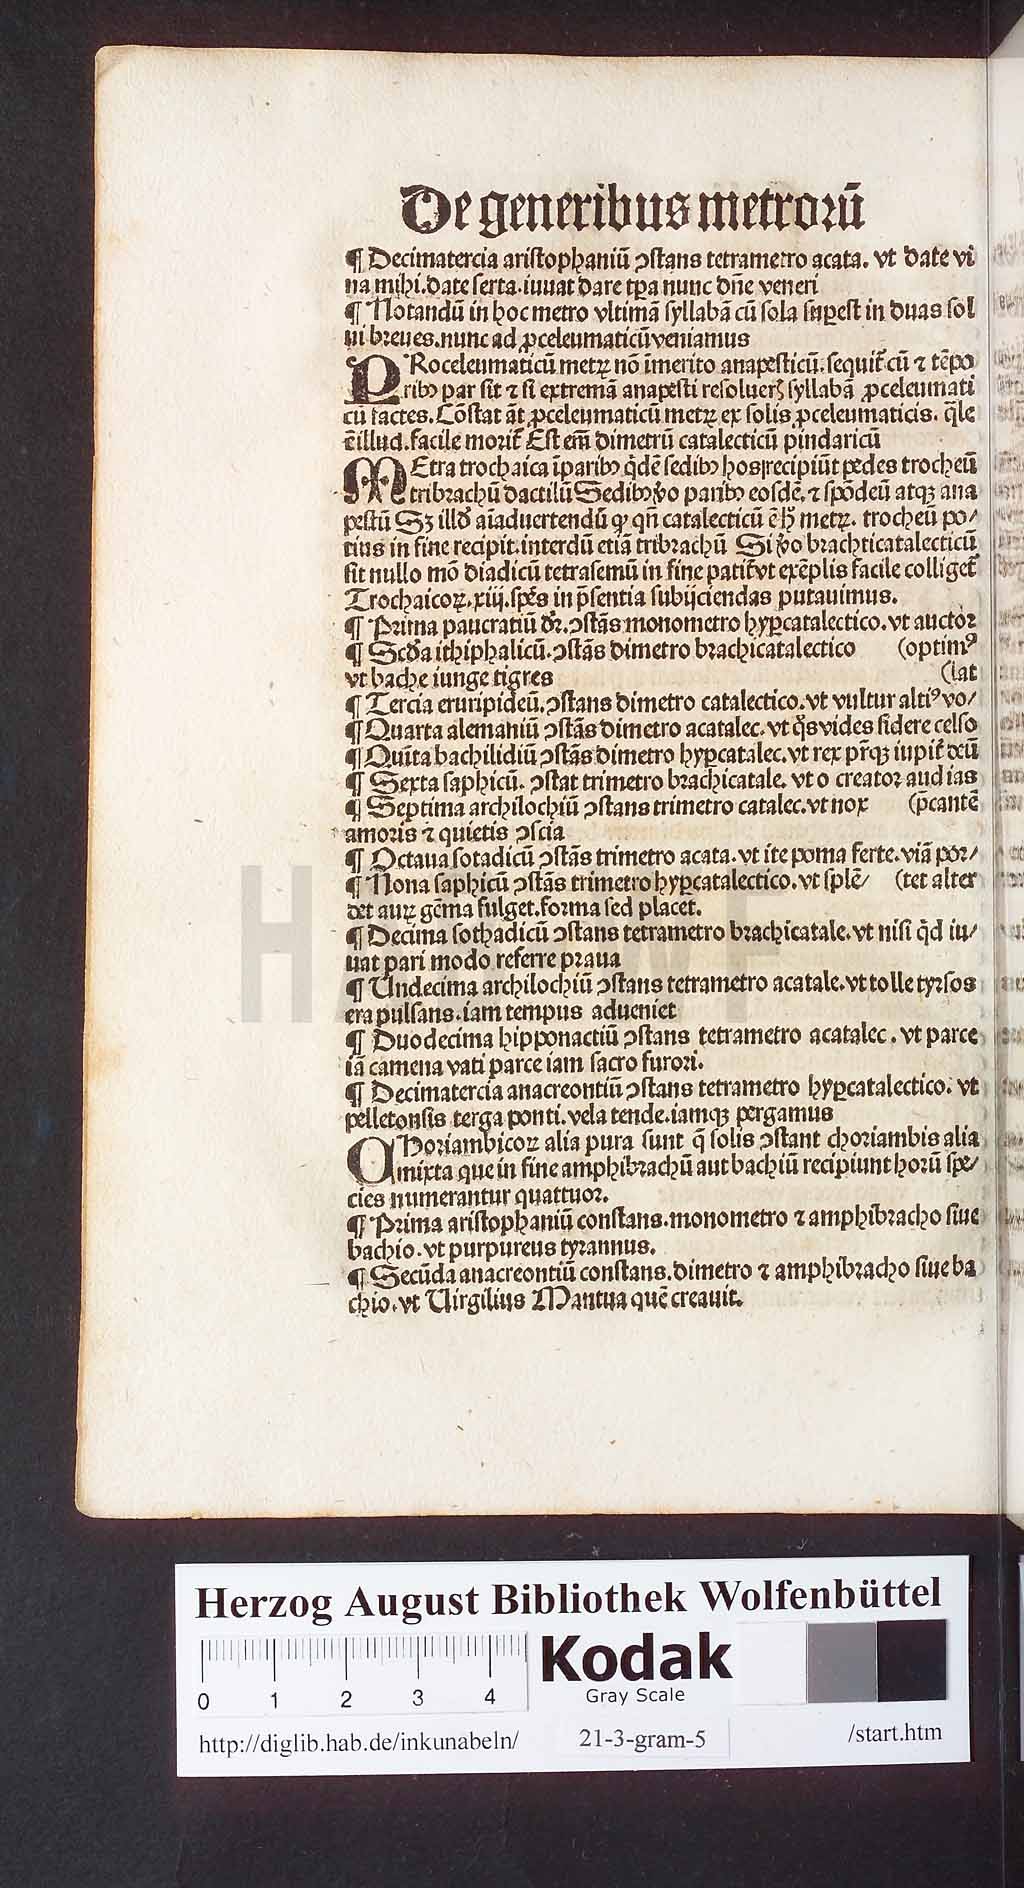 De generibus metrorū
¶ Decimatercia aristophaniū ↄstans tetrametro acata. vt date vi
na mihi.date serta.iuuat dare tꝑa nunc dn̄e veneri
¶ Notandū in hoc metro vltimā syllabā cū sola suꝑest in duas sol
ui breues.nunc ad ꝓceleumaticū veniamus
PRoceleumaticū metꝝ nō īmerito anapesticū.sequit᷑ cū ⁊ tēpo
ribꝰ par sit ⁊ si extremā anapesti resoluerꝭ syllabā ꝓceleumati
cū facies. Cōstat āt ꝓceleumaticū metꝝ ex solis ꝓceleumaticis. q̄le
ē illud. facile morit᷑ Est em̄ dimetrū catalecticū pindaricū
MEtra trochaica īparibꝰ q̇dē sedibꝰ hos recipiūt pedes trocheū
tribrachū dactilū Sedibꝰ ꝟo paribꝰ eosdē. ⁊ spōdeū atqꝫ ana
pestū Sꝫ illd̓ aīaduertendū ꝙ qn̄ catalecticū ē h̓ metꝝ. trocheū po/
tius in fine recipit.interdū etiā tribrachū Si ꝟo brachticatalecticū
sit nullo mō diadicū tetrasemū in fine patit᷑ vt exēplis facile colliget᷑
Trochaicoꝝ.xiij.sp̄es in p̄sentia subijciendas putauimus.
¶ Prima paucratiū dr̄.ↄstās monometro hyꝑcatalectico.vt auctor
¶ Scd̓a ithiphalicū.ↄstās dimetro brachicatalectico (optimꝰ
vt bache iunge tigres (lat
¶ Tercia eruripideū.ↄstans dimetro catalectico.vt vultur altiꝰ vo/
¶ Quarta alemaniū ↄstās dimetro acatalec.vt q̇s vides sidere celso
¶ Quīta bachilidiū ↄstās dimetro hyꝑcatalec.vt rex pr̄qꝫ iupit᷑ deū
¶ Sexta saphicū. ↄstat trimetro brachicatale. vt o creator audias
¶ Septima archilochiū ↄstans trimetro catalec.vt nox (p̄cantē
amoris ⁊ quietis ↄscia
¶ Octaua sotadicū ↄstās trimetro acata.vt ite poma ferte.viā por/
¶ Nona saphicū ↄstās trimetro hyꝑcatalectico.vt splē/ (tet alter
det auꝝ gēma fulget.forma sed placet.
¶ Decima sothadicū ↄstans tetrametro brachicatale.vt nisi q̇d iu/
uat pari modo referre praua
¶ Undecima archilochiū ↄstans tetrametro acatale.vt tolle tyrsos
era pulsans.iam tempus adueniet
¶ Duodecima hipponactiū ↄstans tetrametro acatalec . vt parce
iā camena vati parce iam sacro furori.
¶ Decimatercia anacreontiū ↄstans tetrametro hyꝑcatalectico. vt
pelletonsis terga ponti.vela tende.iamqꝫ pergamus
CHoriambicoꝝ alia pura sunt q̄ solis ↄstant choriambis alia
mixta que in fine amphibrachū aut bachiū recipiunt horū spe/
cies numerantur quattuor.
¶ Prima aristophaniū constans.monometro ⁊ amphibracho siue
bachio.vt purpureus tyrannus.
¶ Secūda anacreontiū constans.dimetro ⁊ amphibracho siue ba
chio.vt Uirgilius Mantua quē creauit.
HAB WF
Herzog August Bibliothek Wolfenbüttel
0 1 2 3 4
Kodak
Gray Scale
http://diglib.hab.de/inkunabeln/ 21-3-gram-5 /start.htm